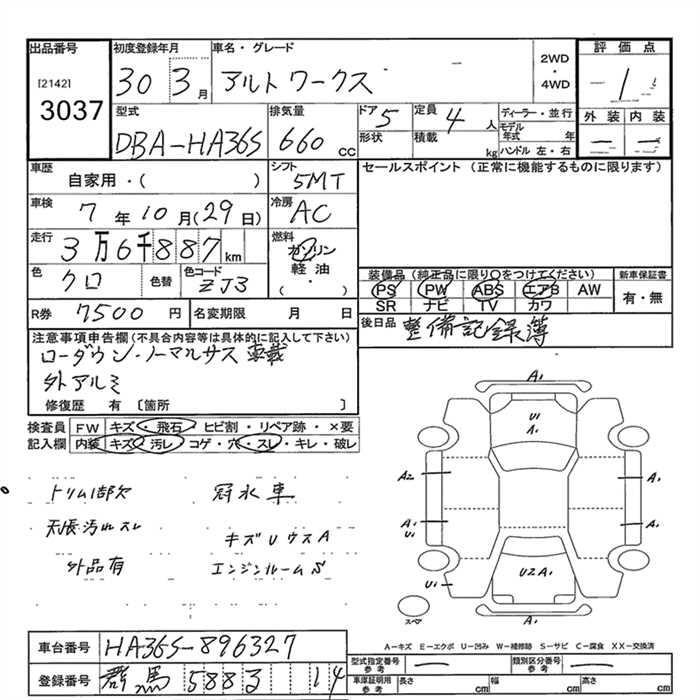 出品番号 初度登録年月 車名・グレード 評価点
[2142] 30 3月 アルトワークス 2WD・4WD 1
3037
外装 内装
型式 排気量 ドア 5 定員 4人 ディーラー・並行
DBA-HA36S 660cc 形状 積載 kg モデル年式 年
ハンドル 左・右
車歴 シフト セールスポイント (正常に機能するものに限ります)
自家用・( ) 5MT
車検 7年10月(29日) 冷房 AC
走行 3万6千887km 燃料 ガソリン
軽油
色 クロ 色替 色コード ZJ3 ( ・ )
装備品(純正品に限り○をつけてください) 新車保証書
PS PW ABS エアB AW 有・無
SR ナビ TV カワ
R券 7500円 名変期限 月 日
後日品 整備記録簿
注意事項申告欄(不具合内容等は具体的に記入して下さい)
ローダウン・ノーマルサス車載
外アルミ
修復歴 有 〔箇所 〕
検査員 FW キズ・飛石・ヒビ割・リペア跡・×要
記入欄 内装 キズ・汚レ・コゲ・穴・スレ・キレ・破レ
トリム1部欠 冠水車
天張汚れスレ キズUウスA
外品有 エンジンルームS
A1
U1
A1
A2 A1
A1 A1
U1
U1 U2 A1
スペア A1
A-キズ E-エクボ U-凹み W-補修跡 S-サビ C-腐食 XX-交換済
車台番号 HA36S-896327
登録番号 群馬 5883 14
型式指定番号 参考 類別区分番号 参考
車庫証明用 参考 長さ cm 幅 cm 高さ cm